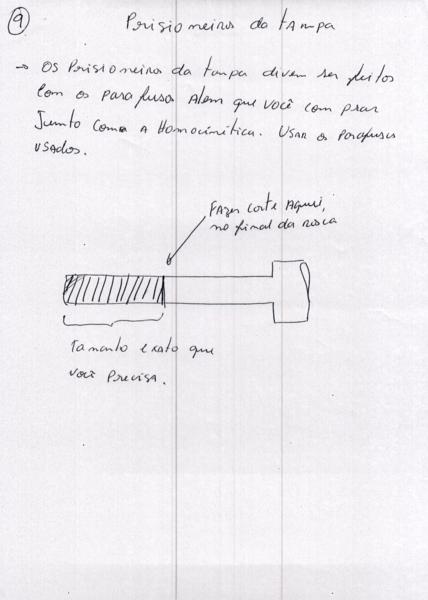 9
Prisioneiros da tampa
→ Os Prisioneiros da tampa divem ser feitos
Com os parafusos Alem que você com prar
Junto Coma A Homocinética. Usar os parafusos
usados.
Fazer corte Aqui,
no final da rosca
Tamanho exato que
você precisa.